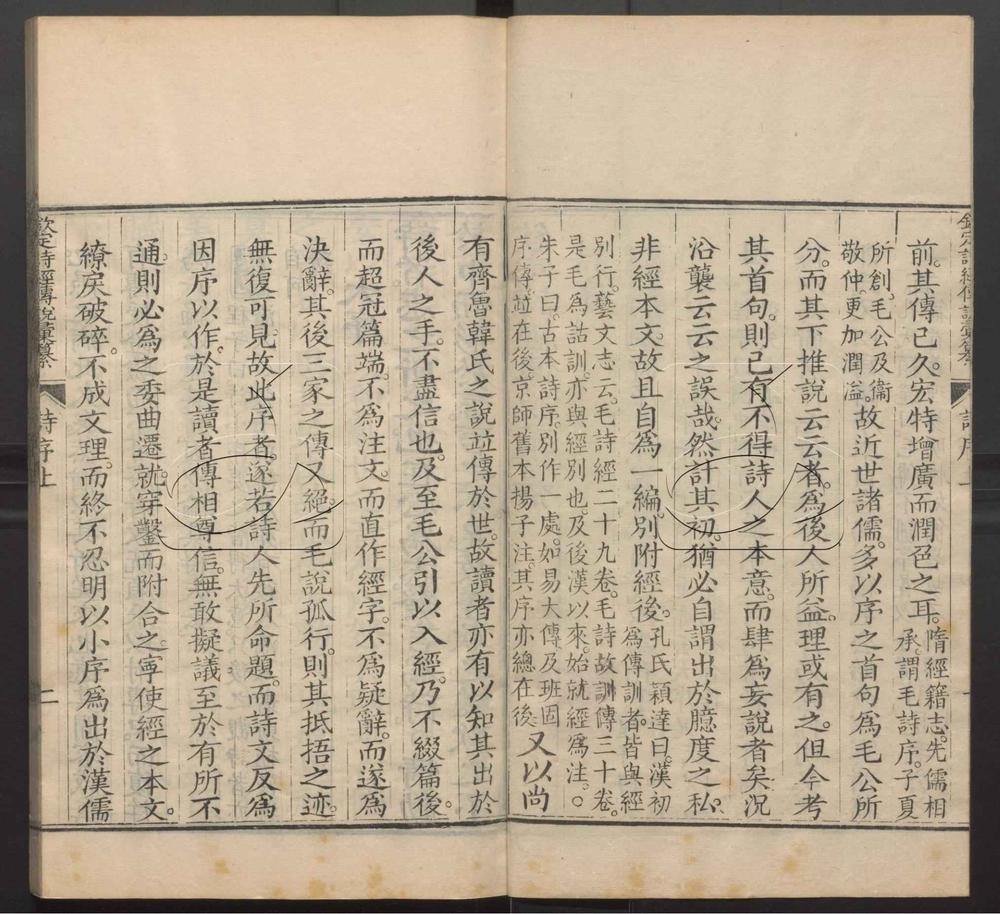 前。其傳已久。宏特增廣而潤色之耳。隋經籍志。先儒相
承。謂毛詩序。子夏
所創。毛公及衞
敬仲。更加潤溢。故近世諸儒。多以序之首句爲毛公所
分。而其下推說云云者。爲後人所益。理或有之。但今考
其首句。則已有不得詩人之本意。而肆爲妄說者矣。況
沿襲云云之誤哉。然計其初。猶必自謂出於臆度之私。
非經本文。故且自爲一編。別附經後。孔氏穎達曰。漢初
爲傳訓者。皆與經
別行。藝文志云。毛詩經二十九卷。毛詩故訓傳三十卷。
是毛爲詁訓。亦與經別也。及後漢以來。始就經爲注。○
朱子曰。古本詩序。別作一處。如易大傳。及班固
序傳。竝在後。京師舊本揚子注。其序亦總在後。又以尚
有齊魯韓氏之說。竝傳於世。故讀者亦有以知其出於
後人之手。不盡信也。及至毛公引以入經。乃不綴篇後。
而超冠篇端。不爲注文。而直作經字。不爲疑辭。而遂爲
決辭。其後三家之傳又絕。而毛說孤行。則其抵捂之迹。
無復可見。故此序者。遂若詩人先所命題。而詩文反爲
因序以作。於是讀者傳相尊信。無敢擬議。至於有所不
通。則必爲之委曲遷就。穿鑿而附合之。寧使經之本文。
繚戾破碎。不成文理。而終不忍明以小序爲出於漢儒
欽定詩經傳說彙纂
詩序上
二